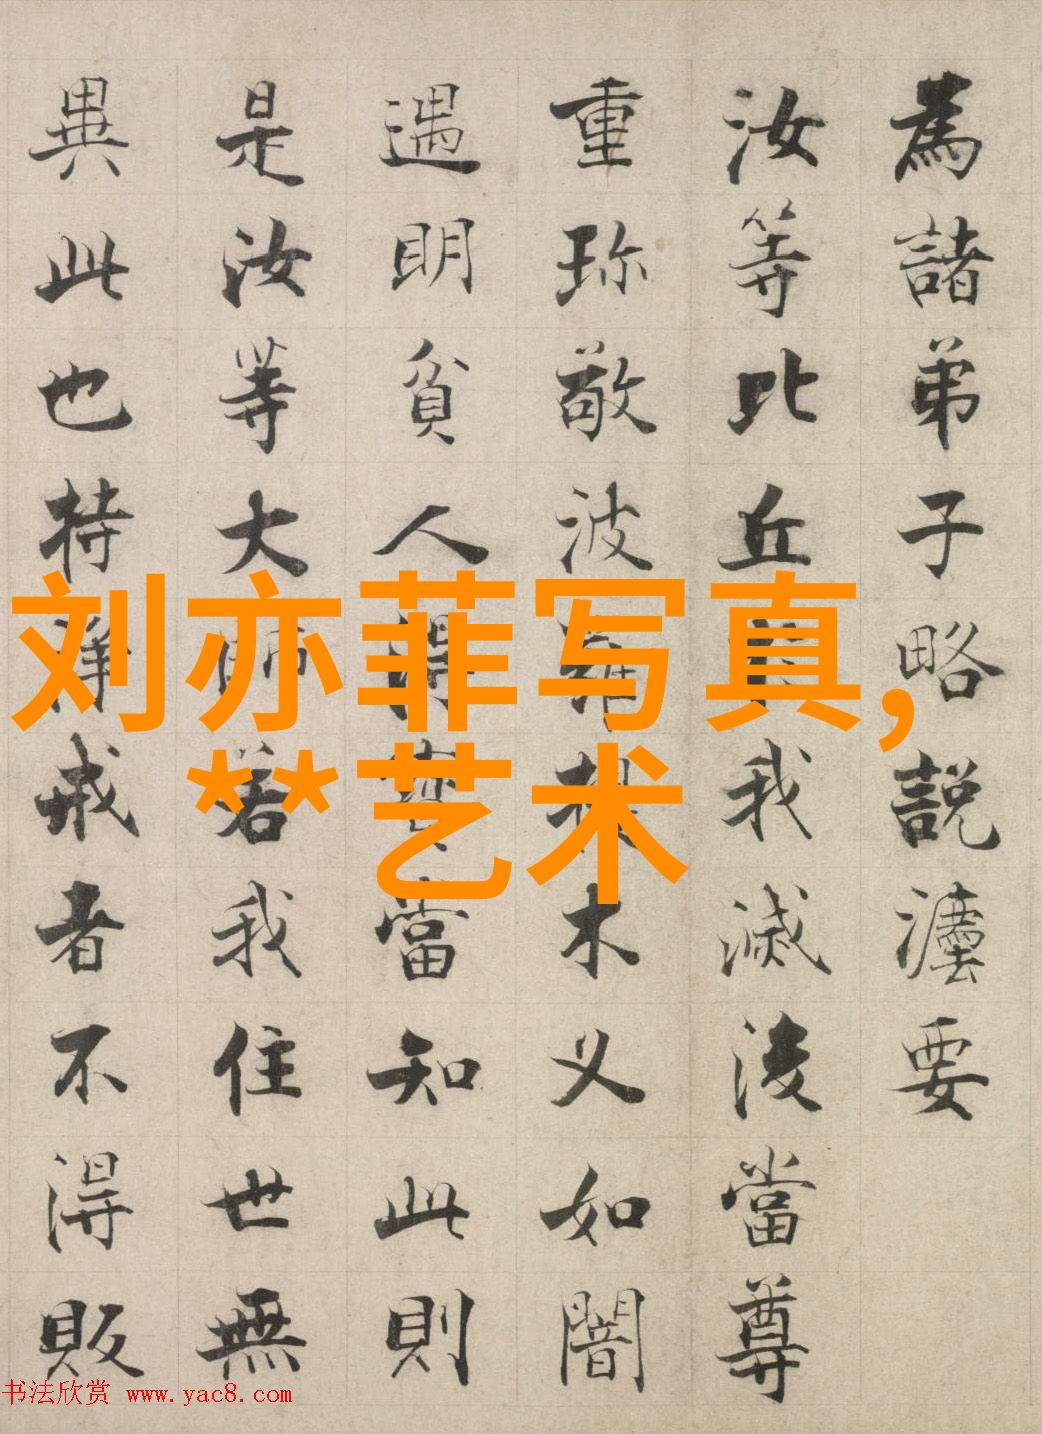 為諸弟子略説法要
汝等比丘我滅後當尊
重珎敬波羅提木叉如闇
遇明貧人得寶當知此則
是汝等大師若我住世無
異此也持淨戒者不得販
刘亦菲写真,
**艺术
书法欣赏 www.yac8.com